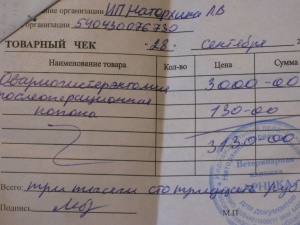 организации ИП Наторхина ЛВ
организации 540430076730
ТОВАРНЫЙ ЧЕК 28 сентября
Наименование товара Кол-во Цена Сумма
Овариогистерэктомия 3000-00
послеоперационная 130-00
попона
3130-00
Всего: три тысячи сто тридцать руб
Подпись М.П
Ветеринарная
для документов